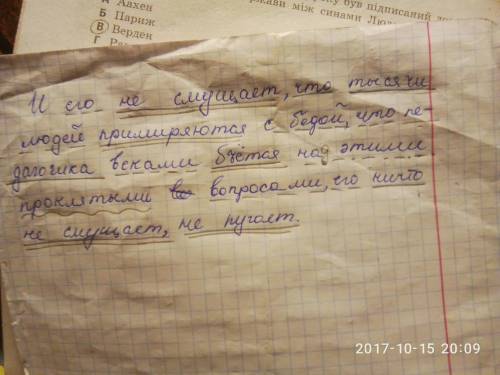 Аахен
Б Париж
В Верден
Г
був підписаний
між синами
И его не смущает, что тысячи
людей примиряются с бедой, что пе-
дагогика веками бьётся над этими
проклятыми вопросами, его ничто
не смущает, не пугает.
2017-10-15 20:09